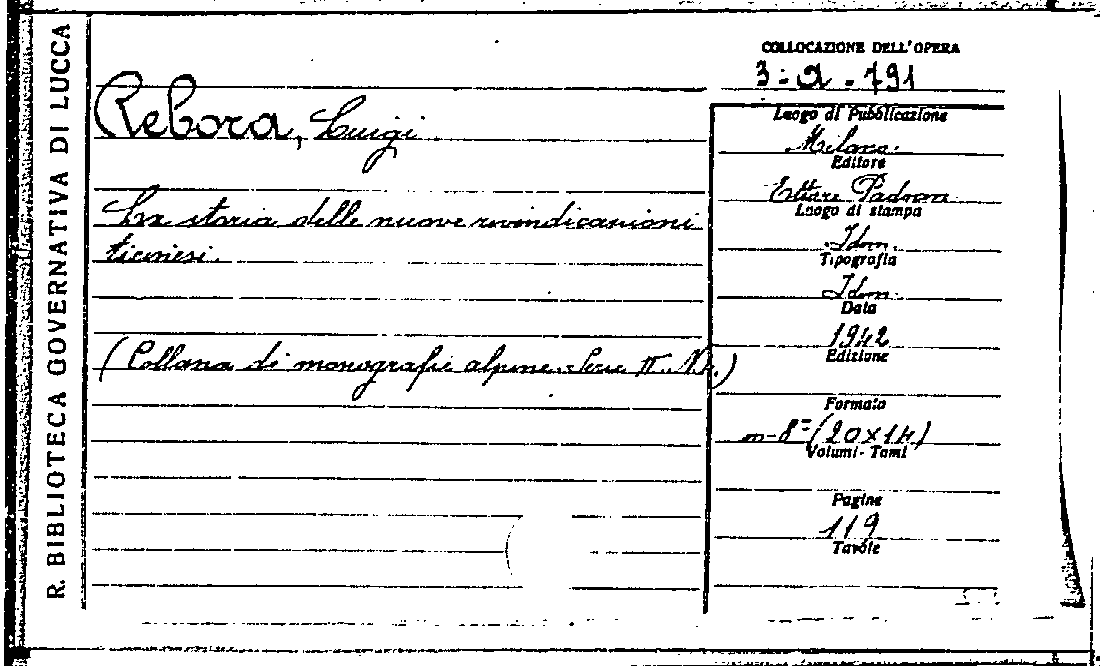 R. BIBLIOTECA GOVERNATIVA DI LUCCA
COLLOCAZIONE DELL'OPERA
3-a-791
Rebora, Luigi.
La storia delle nuove rivendicazioni
ticinesi.
(Collana di monografie alpine. Serie II. N. 4.)
Luogo di Pubblicazione
Milano.
Editore
Ettore Padoan
Luogo di stampa
Idm.
Tipografia
Idm.
Data
1942
Edizione
Formato
in-8° (20x14)
Volumi-Tomi
Pagine
119
Tavole